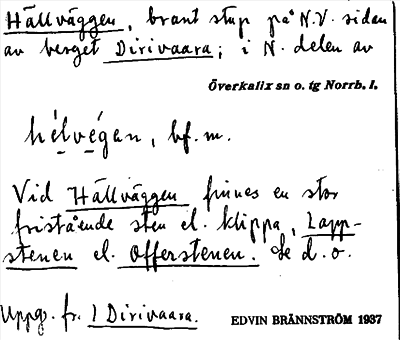 Hällväggen, brant stup på N.V. sidan
av berget Dirivaara; i N. delen av
Överkalix sn o. tg Norrb. l.
hélvégan, bf. m.
Vid Hällväggen finnes en stor
fristående sten el. klippa, Lapp-
stenen el. Offerstenen. Se d. o.
Uppg. fr. 1 Dirivaara.
EDVIN BRÄNNSTRÖM 1937